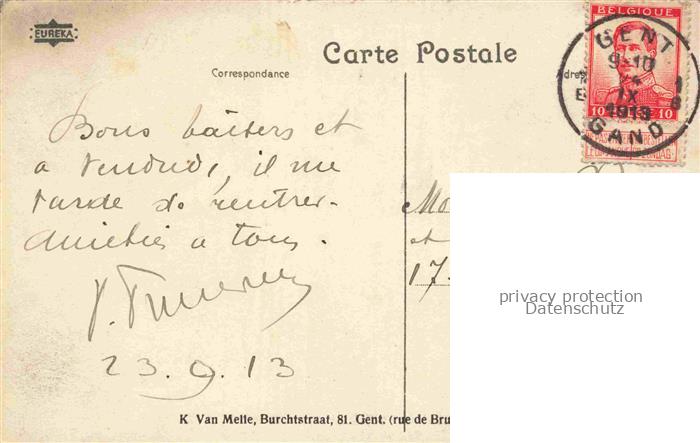 EUREKA
Carte Postale
Correspondance
Adres
BELGIQUE
GENT
9-10
IX
1913
GAND
10 10
Bons baisers et
a vendredi, il me
tarde de rentrer.
Amitiés a tous.
23.9.13
Mo
et
17.
privacy protection
Datenschutz
K Van Melle, Burchtstraat, 81. Gent. (rue de Bru